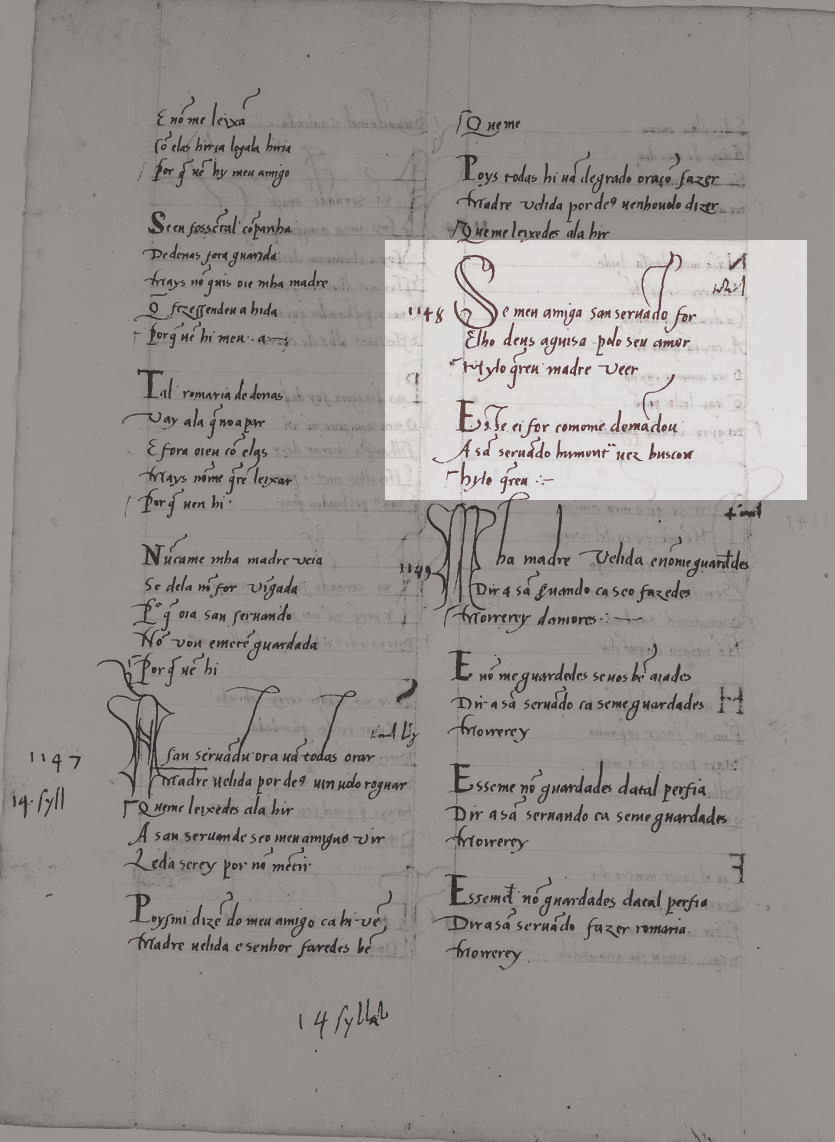 E nõ me leixã
Cõ elas hir ca logala hiria
Por q̄ uẽ hy meu amigo
Se eu fosse tal cõpanha
De donas fora guarida
Mays nõ quis oie mha madre
Por q̄ uẽ hi meu
Tal romaria de donas
Vay ala q̄ nõ a par
E fora oieu cõ elas
Mays nõme q̄re leixar
Por q̄ uen hi
Nũca me mha madre veia
Se dela nõ for vĩgada
Por q̄ oia san seruando
Nõ vou e me tẽ guardada
Por q̄ uẽ hi
1147
14. syll
A san seruãdu ora uã todas orar
Madre uelida por deꝯ uin uolo roguar
Que me leixedes ala hir
A san seruando se o meu amigue vir
Leda serey por nõ mẽtir
Poys mi dizẽ do meu amigo ca hi uẽ
Madre uelida e senhor faredes bẽ
14 syllab
Que me
Poys todas hi uã degrado oraçõ fazer
Madre velida por deꝯ uenhouolo dizer
Que me leixedes ala hir
1148
Se meu amiga san seruado for
E lho deus aguisa polo seu amor
Hylo q̄reu madre veer
E sse el for como me demãdou
A sã seruãdo hu mont̃ uez buscou
Hylo q̄reu
1149
Mha madre velida e nõ me guardedes
Dir a sã seruando ca seo fazedes
Morrerey damores
E nõ me guardedes se uos bẽ aiades
Dir a sã seruãdo ca se me guardades
Morrerey
E sse me nõ guardades da tal perfia
Dir a sã seruando ca se me guardades
Morrerey
E sse me nõ guardades da tal perfia
Dir a sã seruãdo fazer romaria.
Morrerey